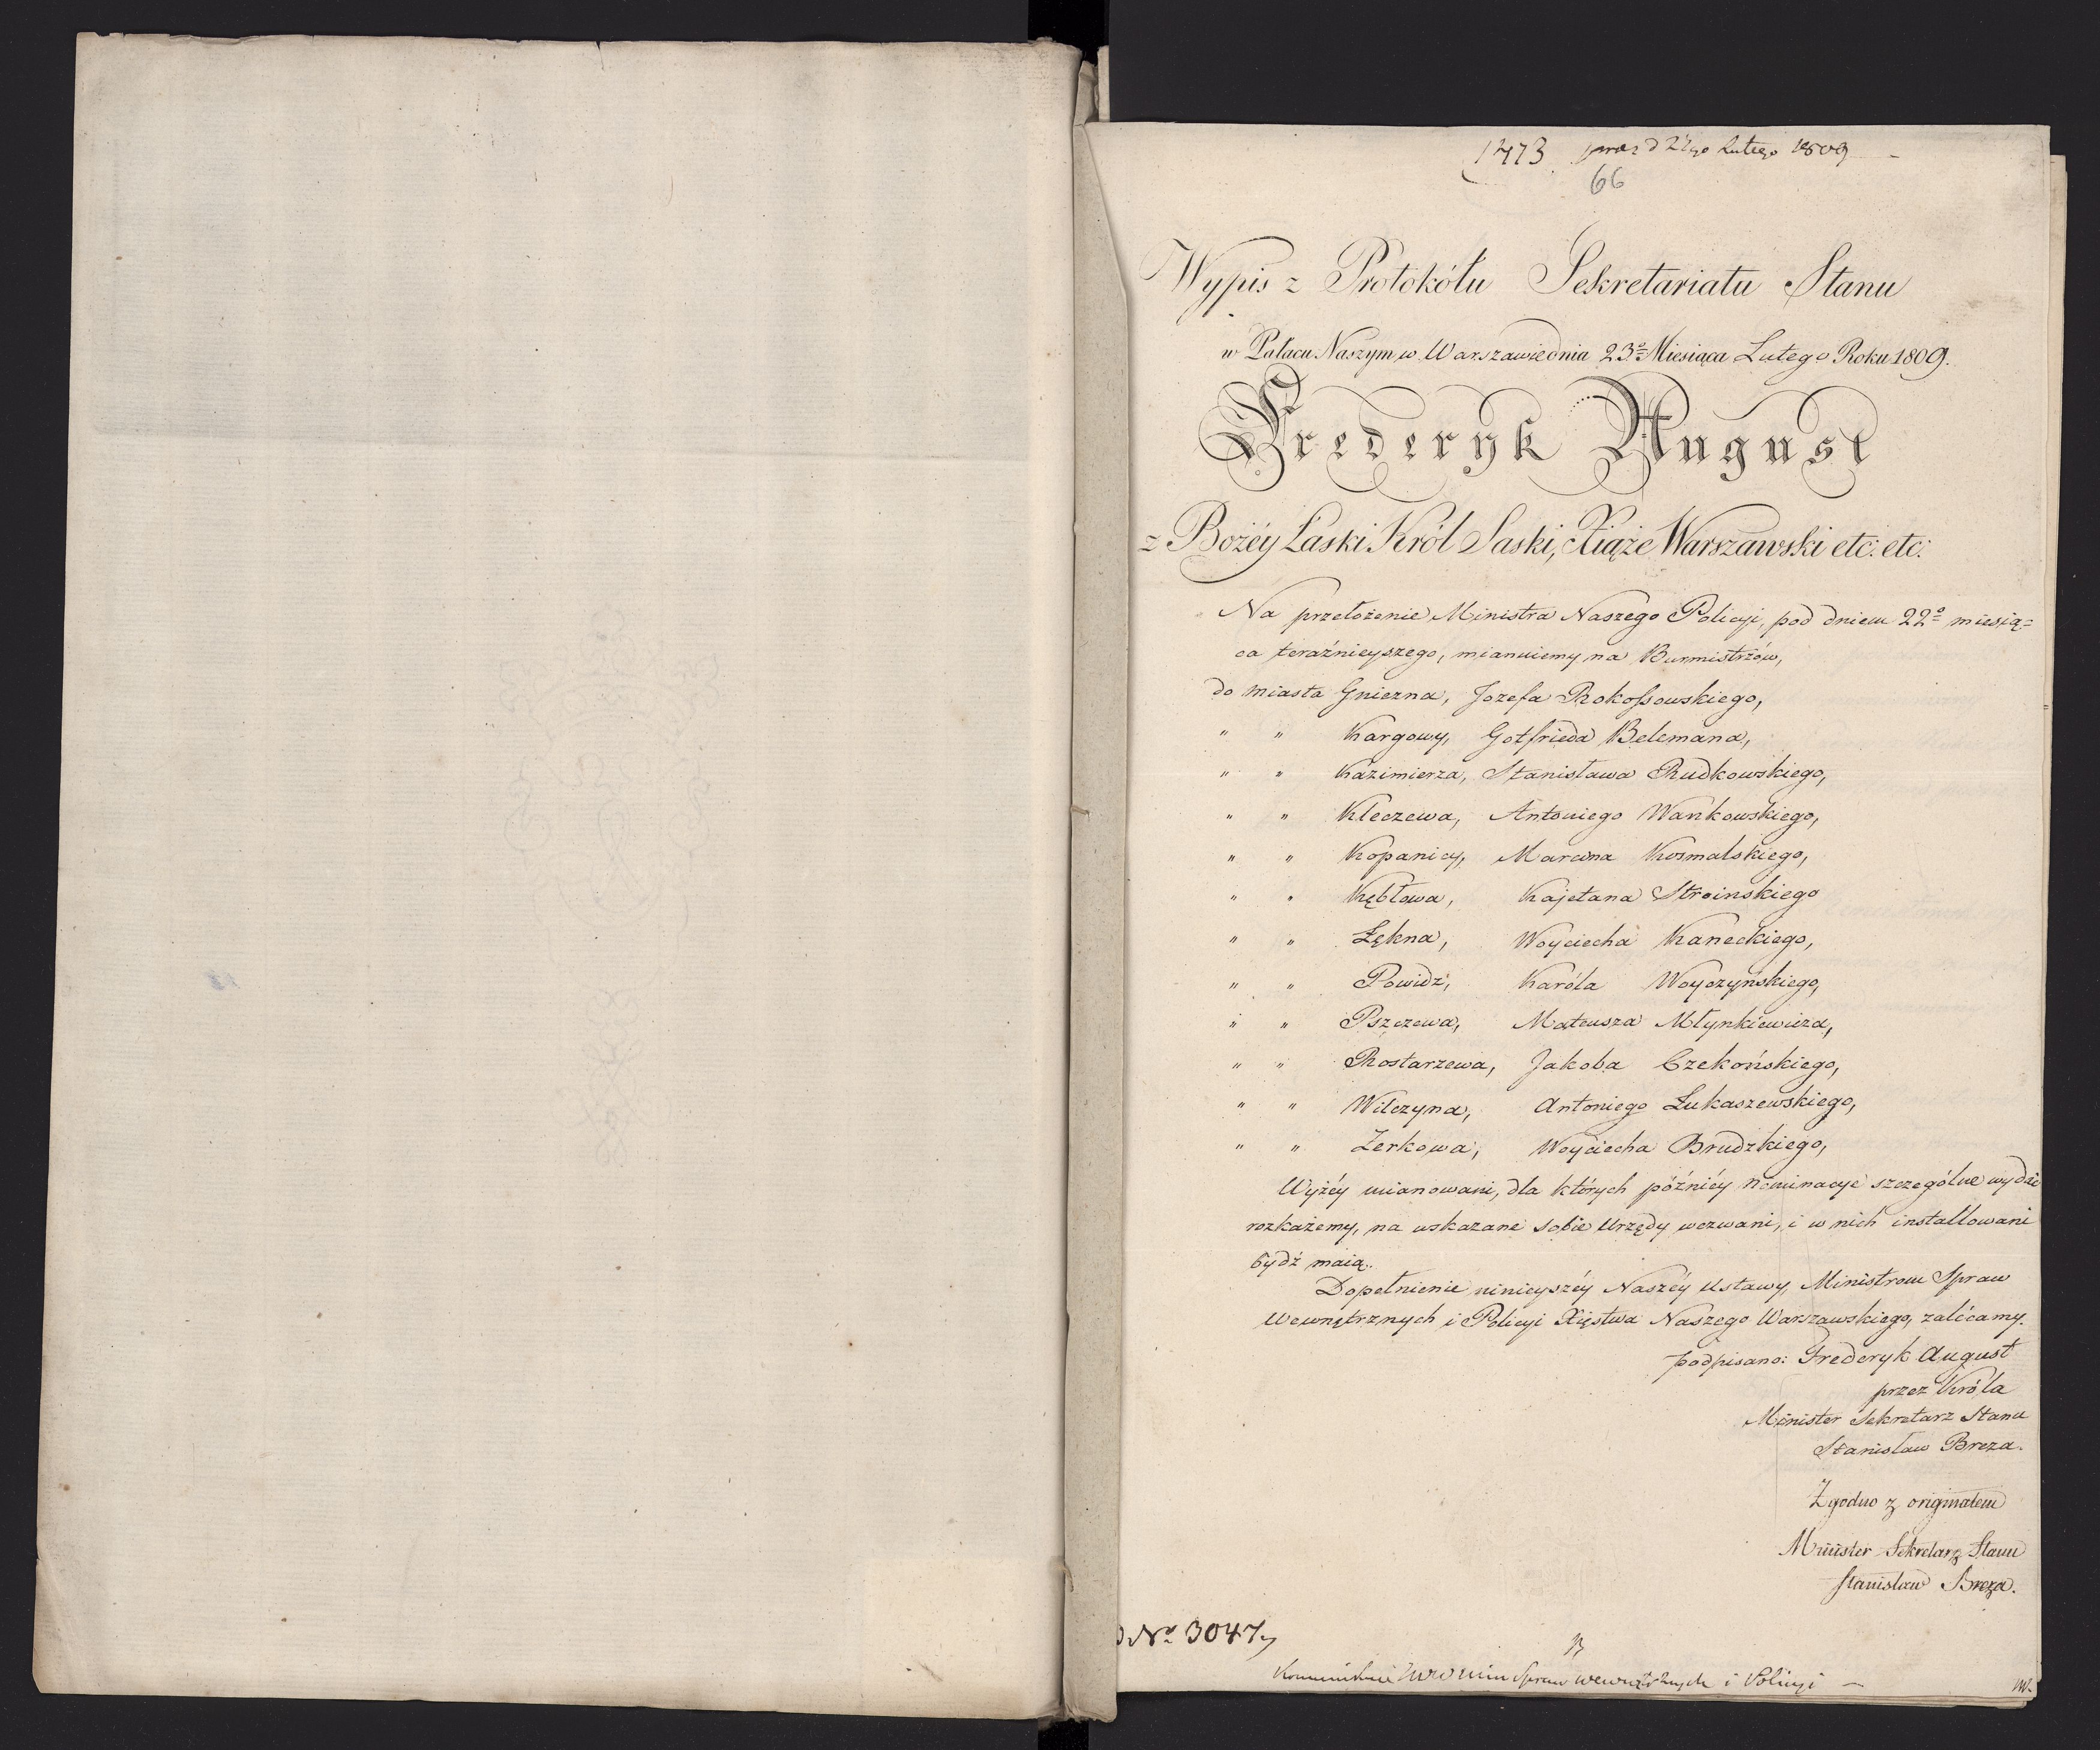 1473 praes d 27go Lutego 1809
66
Wypis z Protokółu Sekretariatu Stanu
w Pałacu Naszym w Warszawie dnia 23o Miesiąca Lutego Roku 1809.
Frederyk August
z Bożéy Łaski Król Saski, Xiąże Warszawski etc: etc:
Na przełożenie Ministra Naszego Policyi, pod dniem 22o miesią=
ca teraźnieyszego, mianuiemy na Burmistrzów,
do Miasta Gniezna, Jozefa Rokossowskiego,
" " Kargowy, Gotfrieda Belemana,
" " Kazimierza, Stanisława Rudkowskiego,
" " Kleczewa, Antoniego Wańkowskiego,
" " Kopanicy, Marcina Kosmalskiego,
" " Kębłowa, Kajetana Stroinskiego
" " Łękna, Woyciecha Kaneckiego,
" " Powidz, Karóla Woyczyńskiego,
" " Pszczewa, Mateusza Młynkiewicza,
" " Rostarzewa, Jakoba Czekońskiego,
" " Wilczyna, Antoniego Łukaszewskiego,
" " Zerkowa, Woyciecha Brudzkiego,
Wyżéy mianowani, dla których późniéy nominacye szczególne wydać
rozkażemy, na wskazane sobie Urzędy wezwani, i w nich installowani
bydź maią.
Dopełnienie ninieyszéy Naszéy Ustawy, Ministrom Spraw
Wewnętrznych i Policyi Xięstwa Naszego Warszawskiego, zalécamy.
podpisano: Frederyk August
przez Króla
Minister Sekretarz Stanu
Stanisław Breza.
Zgodno z originałem
Minister Sekretarz Stanu
Stanisław Breza.
No 3047
Spraw wewnętrznych i Policyi —